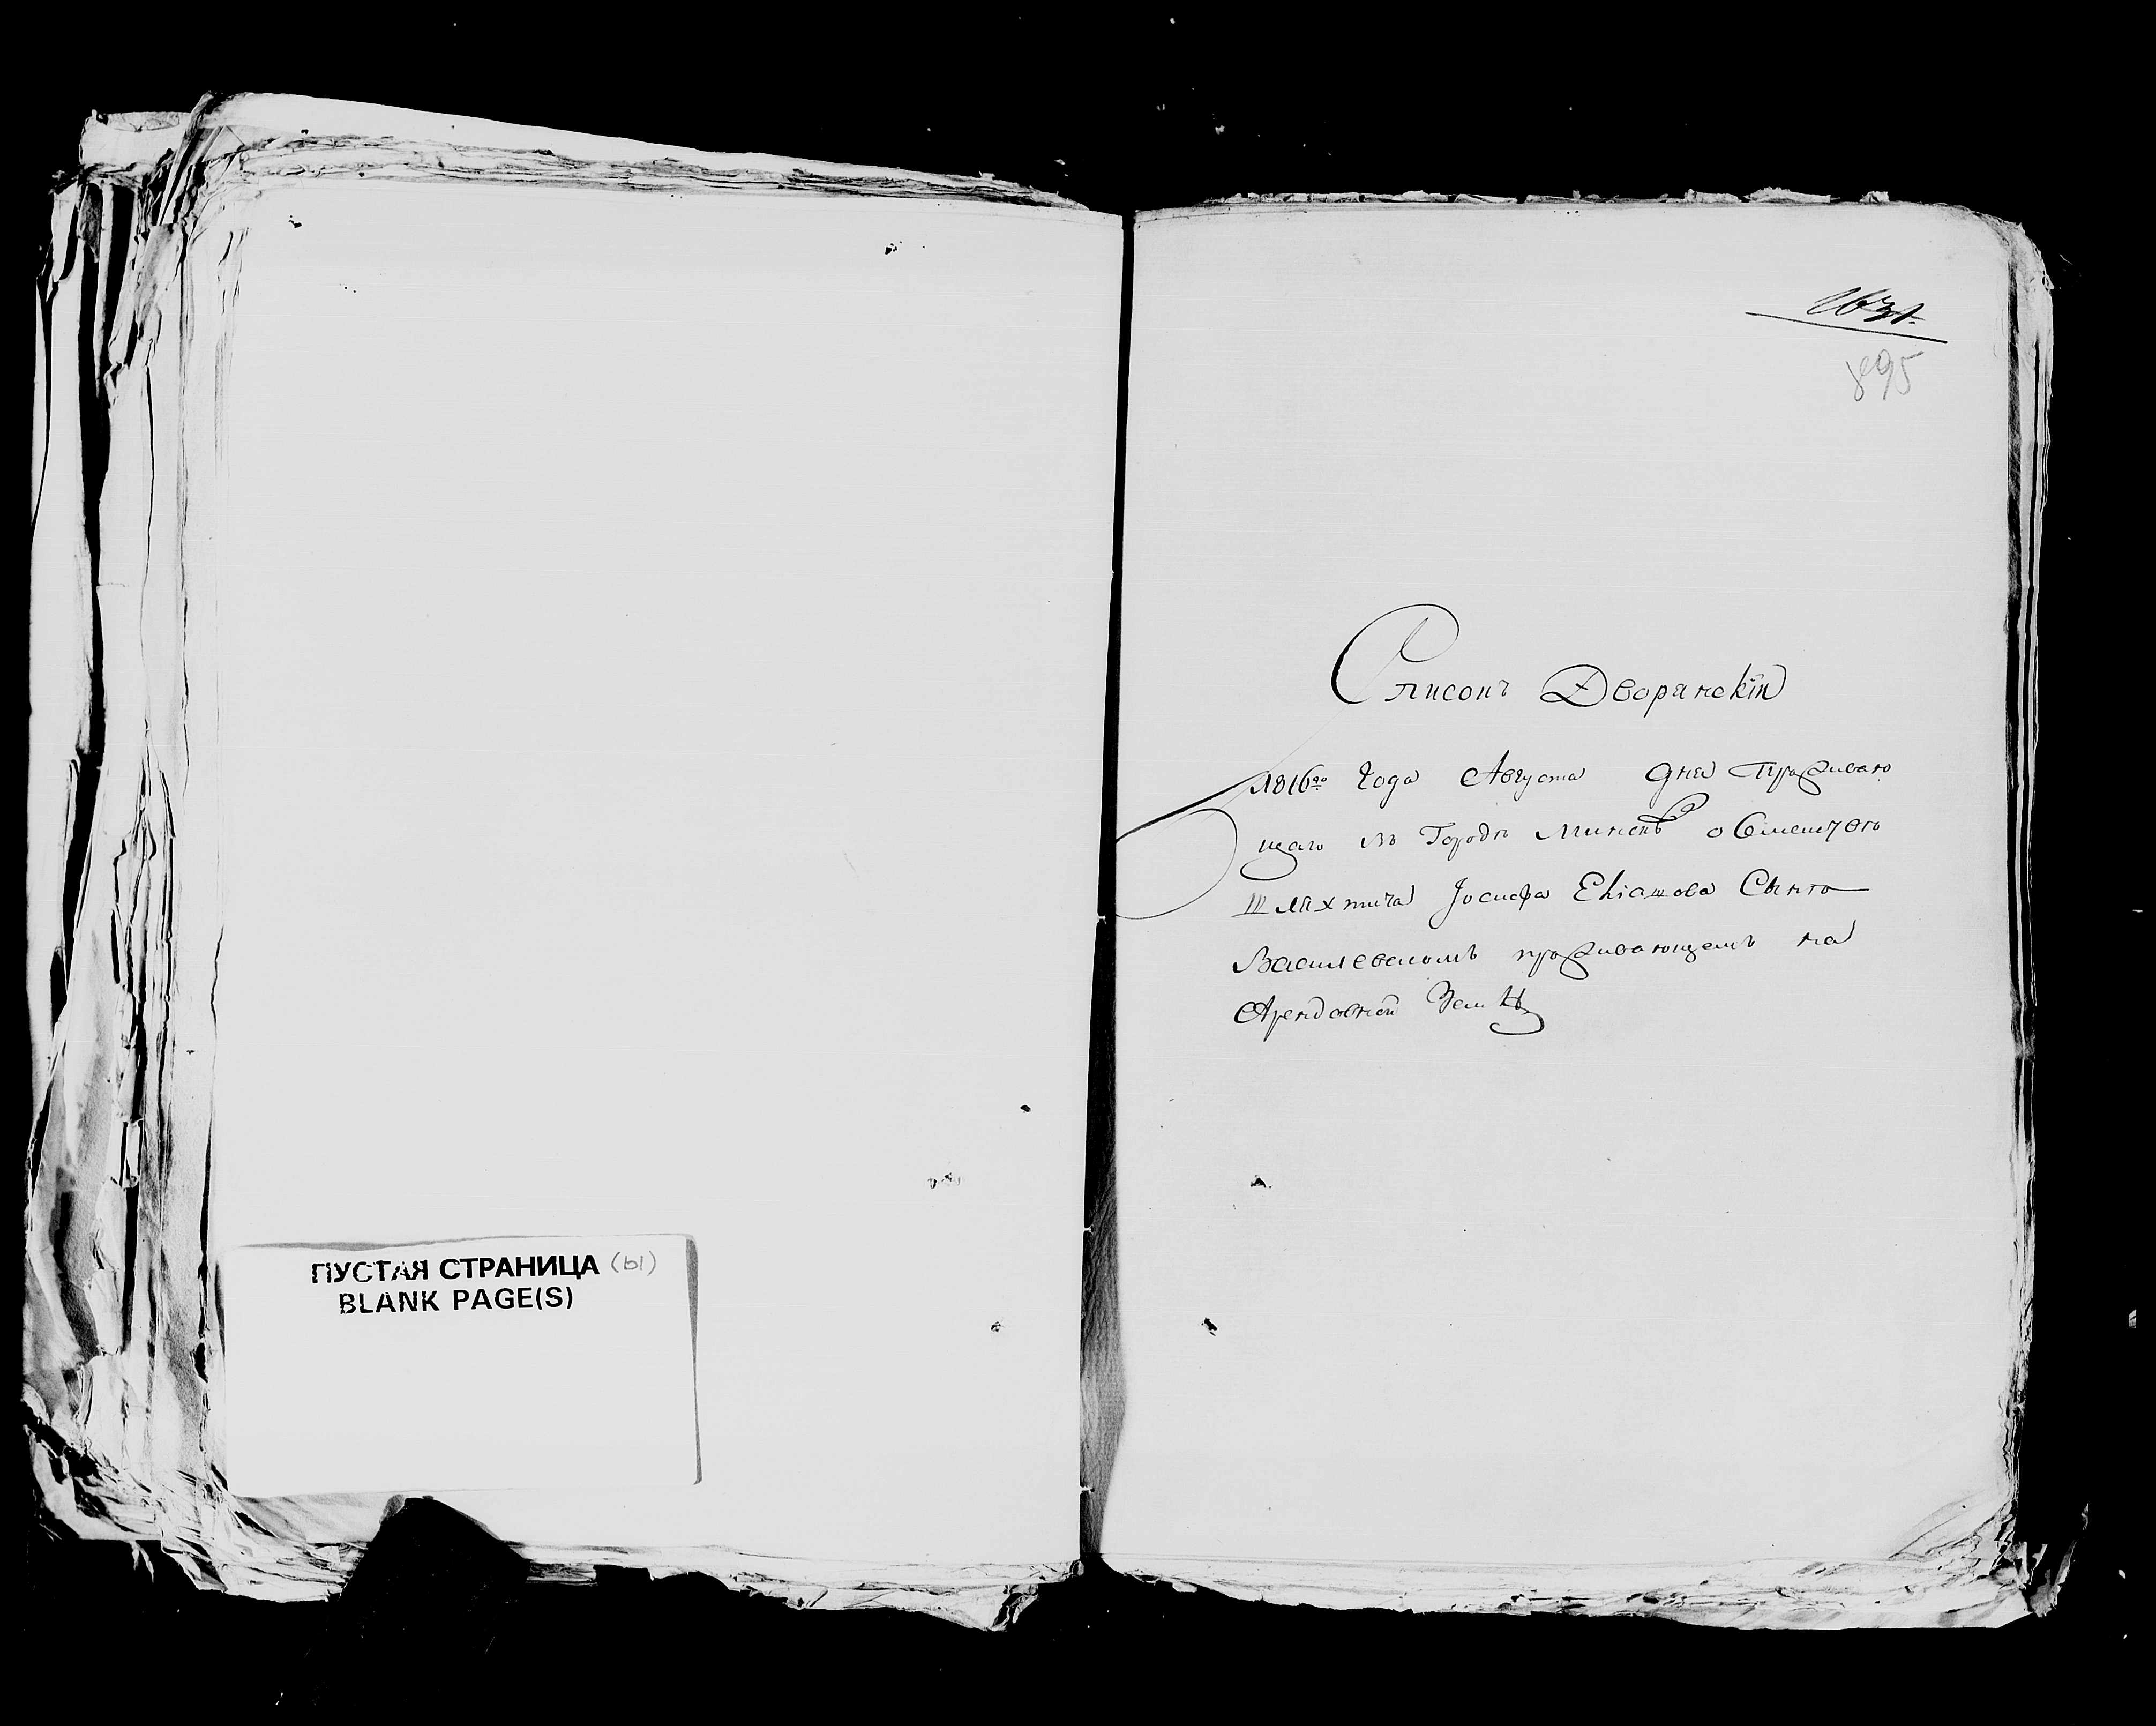 ПУСТАЯ СТРАНИЦА (ы)
BLANK PAGE(S)
1631.
895
Списокъ Дворянскій
1816го Года Августа дня Проживаю
щаго въ Городѣ Минскѣ о Семействѣ
Шляхтича Іосифа Еліашова Сына
Василевскомъ проживающемъ на
Арендовной Землѣ